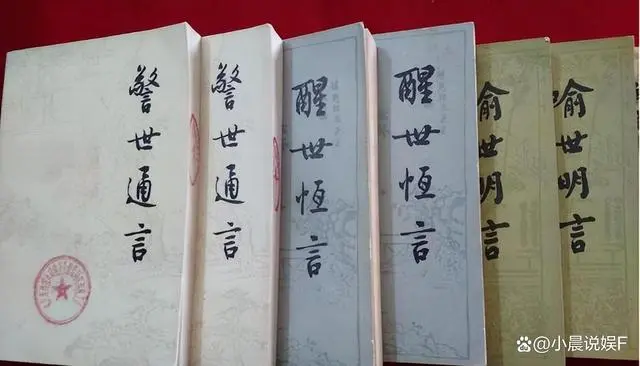 警世通言
警世通言
醒世恒言
醒世恒言
喻世明言
喻世明言
@小晨说娱F